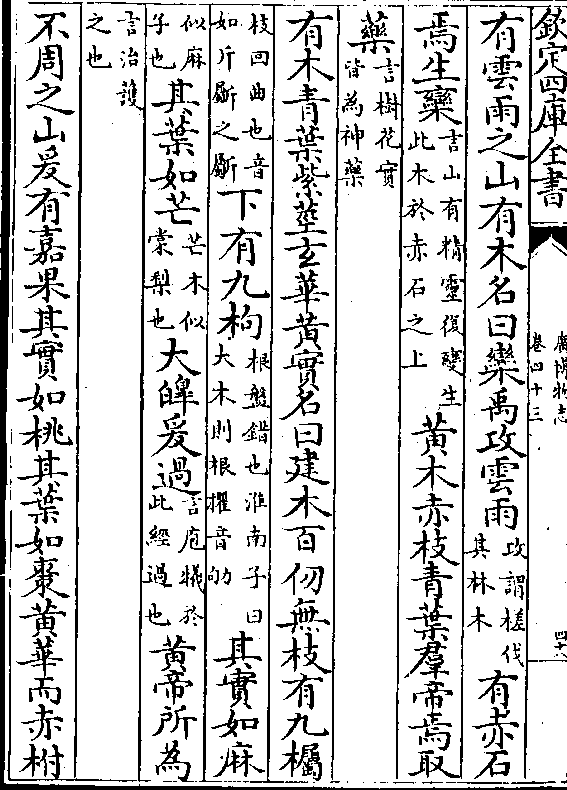 欽定四庫全書
廣博物志
卷四十三
有雲雨之山有木名曰欒禹攻雲雨攻謂槎伐其林木有赤石
焉生欒言山有精靈復變生此木於赤石之上黄木赤枝青葉羣帝焉取
藥言樹花實皆為神藥
有木青葉紫莖玄華黄實名曰建木百仞無枝有九欘
枝回曲也音如斤斸之斸下有九枸根盤錯也淮南子曰大木則根欋音劬其實如麻
似麻子也其葉如芒芒木似棠梨也大皥爰過言庖犧於此經過也黄帝所為
言治護之也
不周之山爰有嘉果其實如桃其葉如棗黄華而赤柎